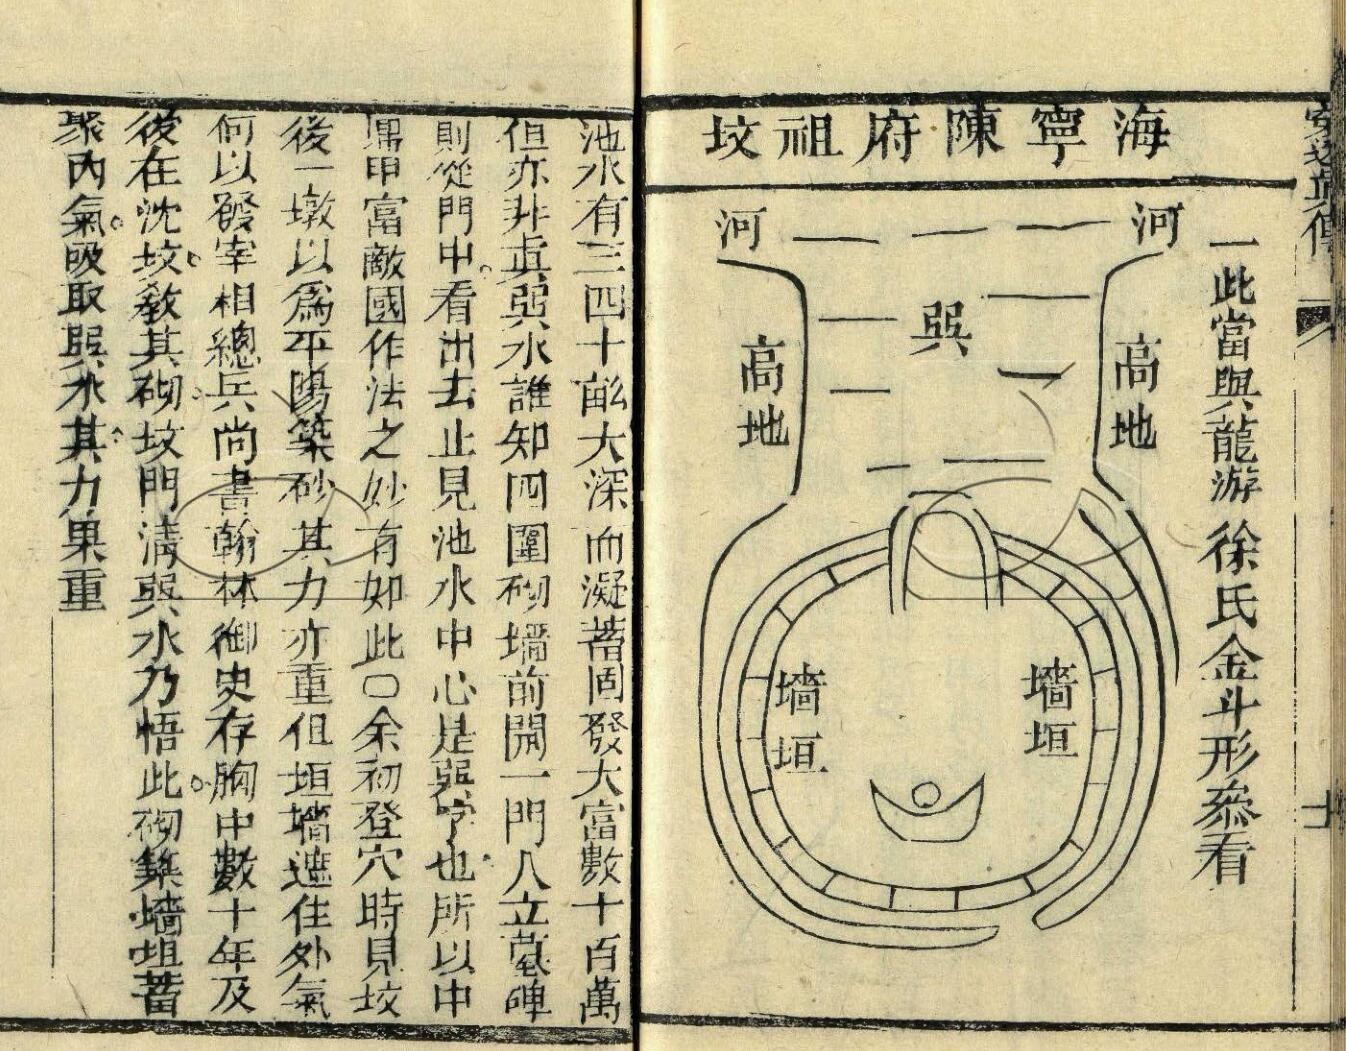 海寧陳府祖坟
一此當與龍游徐氏金斗形叅看
河
河
巽
高地
高地
墻垣
墻垣
池水有三四十畝大深而凝蓄固發大富數十百萬
但亦非眞巽水誰知四圍砌墻前開一門人立墓碑
則從門中看出去止見池水中心是巽字也所以中
鼎甲富敵國作法之妙有如此〇余初登穴時見坟
後一墩以爲平陽築砂其力亦重但垣墻遮住外氣
何以發宰相總兵尚書翰林御史存胸中數十年及
後在沈坟教其砌坟門淸巽水乃悟此砌築墻垣蓄
聚內氣吸取巽水其力果重